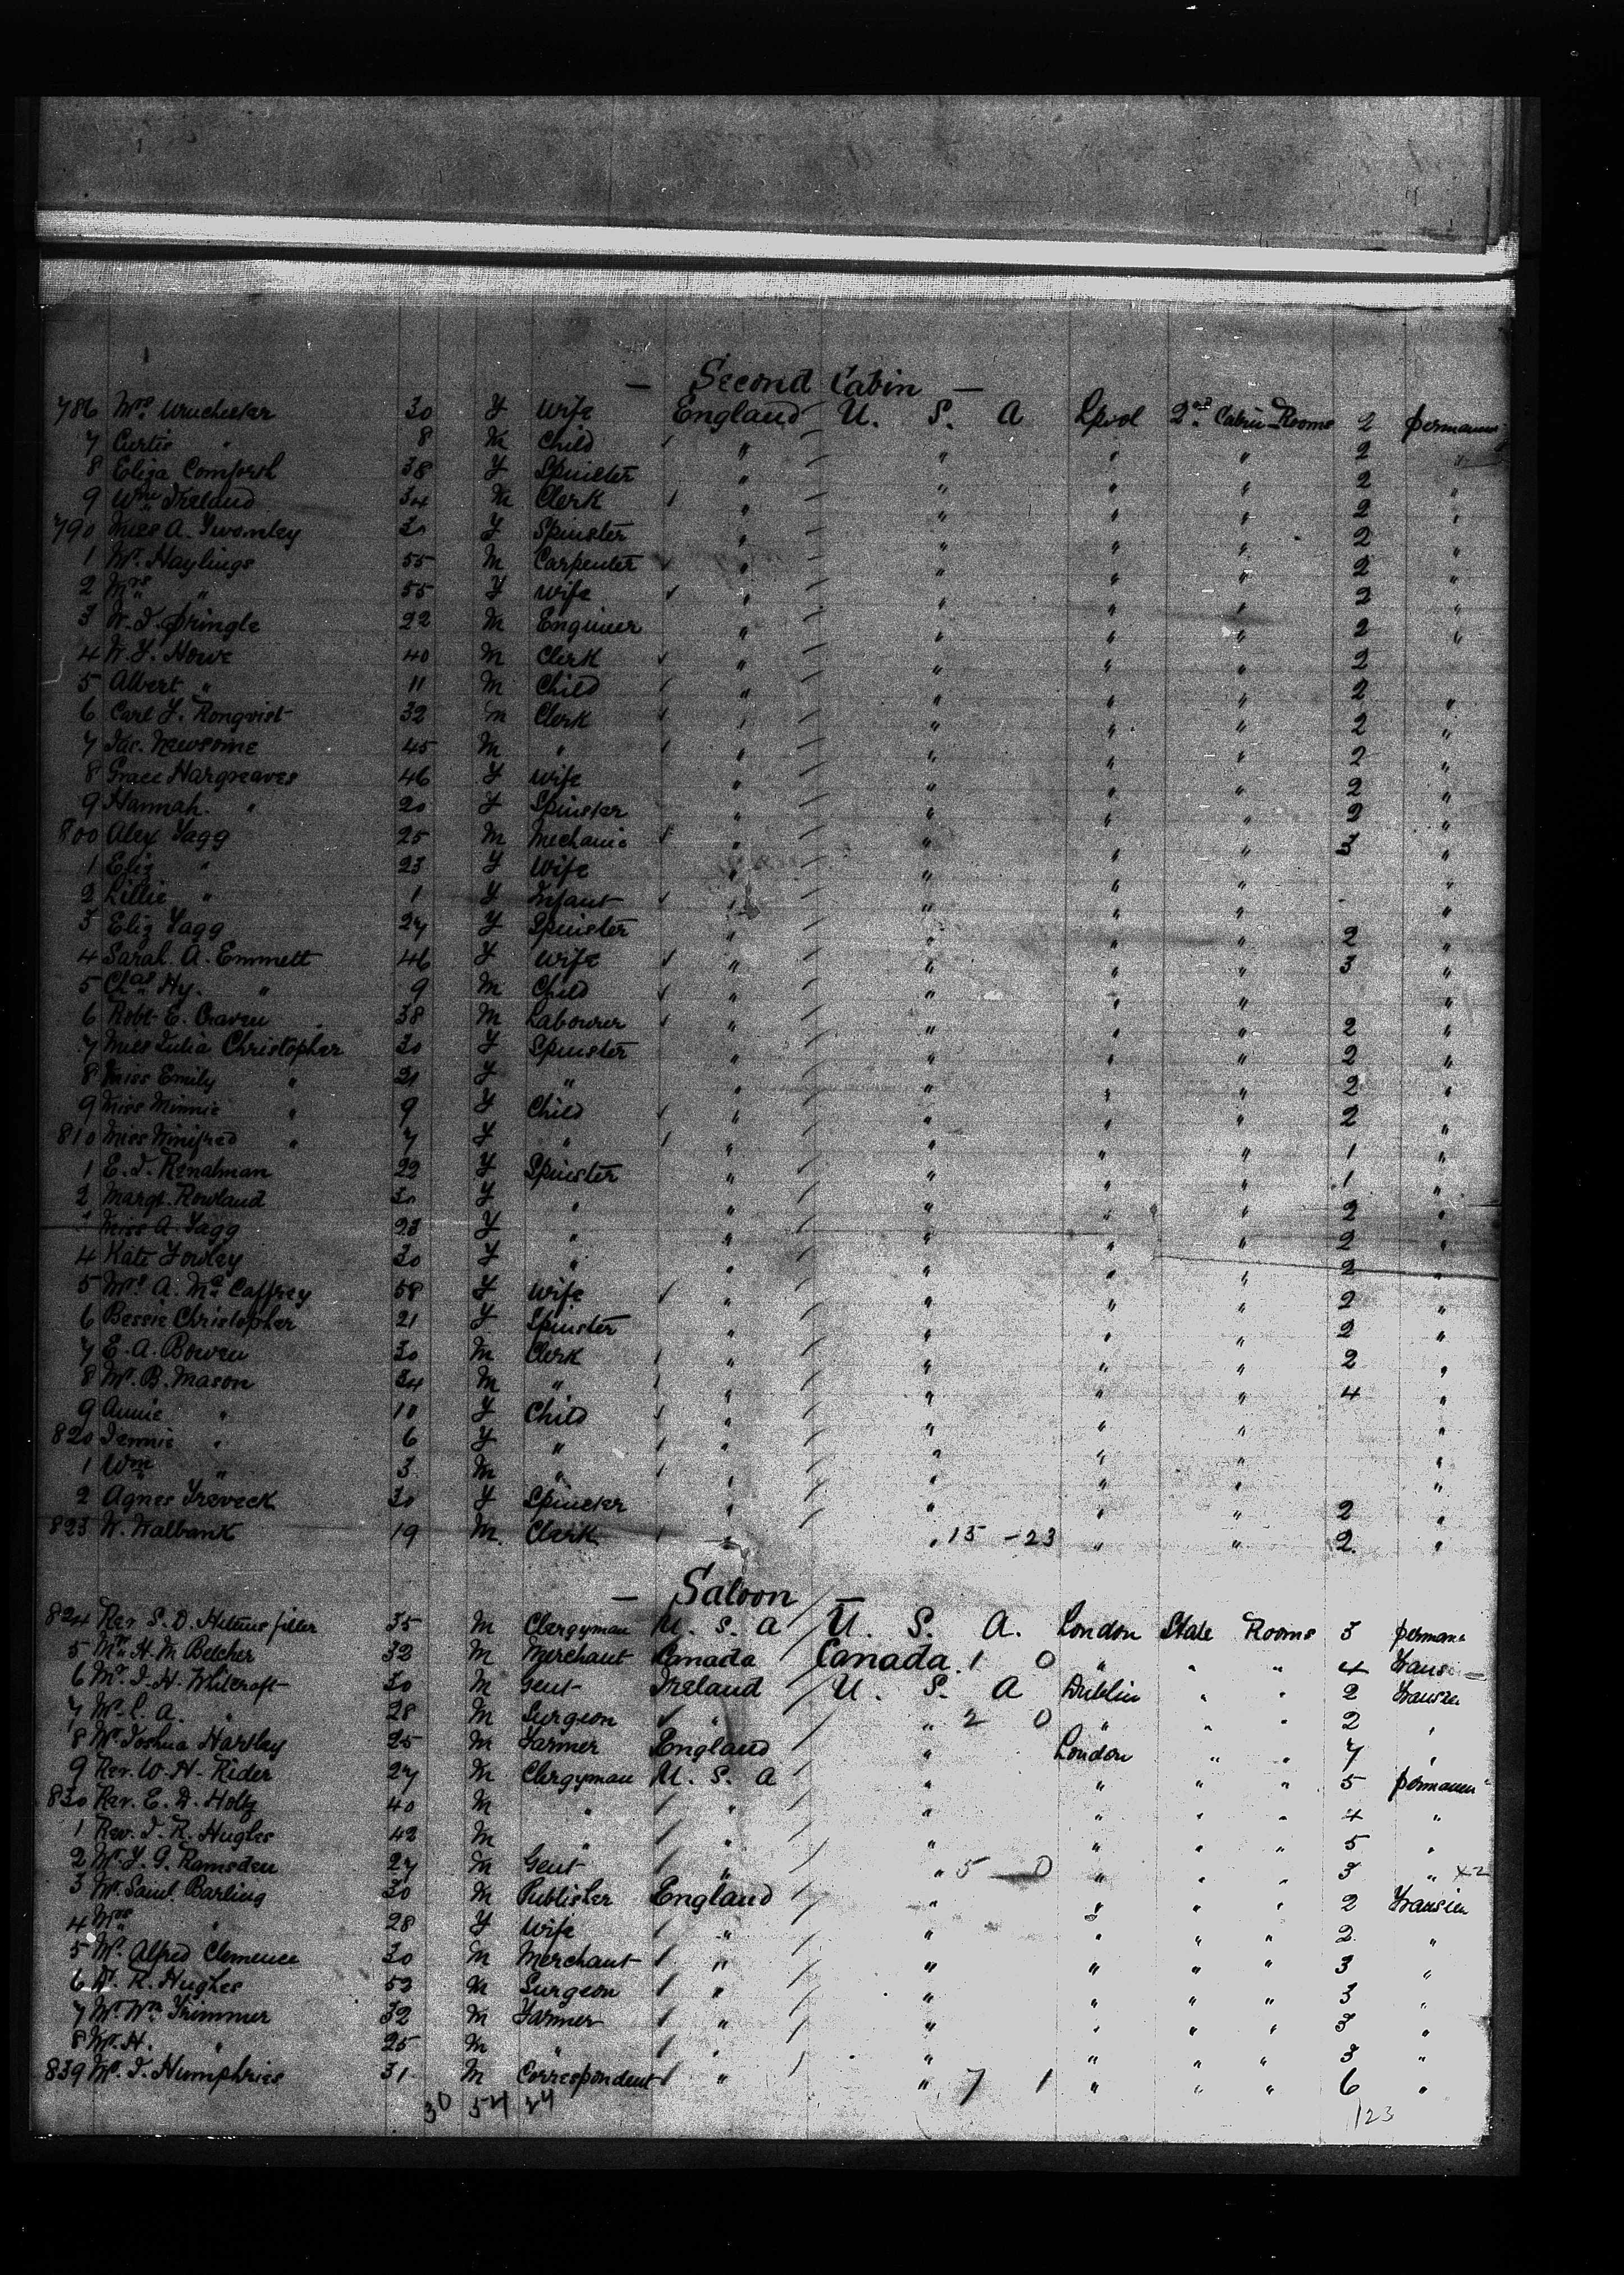 — Second Cabin —
786 Mrs Winchester 30 F Wife England U. S. A Lpool 2nd Cabin Rooms 2 permanen
7 Curtis " 8 M Child " " " " 2 "
8 Eliza Comforth 38 F Spinster " " " " 2 "
9 Wm Ireland 34 M Clerk " " " " 2 "
790 Miss A. Twomley 30 F Spinster " " " " 2 "
1 Mr. Haylings 55 M Carpenter " " " " 2 "
2 Mrs " 55 F Wife " " " " 2 "
3 W. I. Pringle 22 M Engineer " " " " 2 "
4 W. F. Howe 40 M Clerk " " " " 2
5 Albert " 11 M Child " " " " 2 "
6 Carl F. Ronqvist 32 M Clerk " " " " 2 "
7 Jas. Newsome 45 M " " " " " 2 "
8 Grace Hargreaves 46 F Wife " " " " 2 "
9 Hannah " 20 F Spinster " " " " 2 "
800 Alex Fagg 25 M Mechanic " " " " 3 "
1 Eliz " 23 F Wife " " " " "
2 Lillie " 1 F Infant " " " " "
3 Eliz Fagg 27 F Spinster " " " " 2 "
4 Sarah. A. Emmett 46 F Wife " " " " 3 "
5 Chas Hy. " 9 M Child " " " " "
6 Robt E. Craven 38 M Labourer " " " " 2 "
7 Miss Julia Christopher 30 F Spinster " " " " 2 "
8 Miss Emily " 21 F " " " " " 2 "
9 Miss Minnie " 9 F Child " " " " 2 "
810 Miss Winifred " 7 F " " " " " 1 "
1 E. J. Renalman 22 F Spinster " " " " 1 "
2 Margt. Rowland 30 F " " " " " 2 "
Miss A Fagg 23 F " " " " " 2 "
4 Kate Fowley 30 F " " " " " 2 "
5 Mrs A. Mc Caffrey 58 F Wife " " " " 2 "
6 Bessie Christopher 21 F Spinster " " " " 2 "
7 E. A. Bowen 30 M Clerk " " " " 2 "
8 Mr. B. Mason 34 M " " " " " 4 "
9 Annie " 10 F Child " " " " "
820 Jennie " 6 F " " " " " "
1 Wm " 3 M " " " " " "
2 Agnes Treveck 30 F Spinster " " " " 2 "
823 W. Walbank 19 M. Clerk " " 15 - 23 " " 2. "
— Saloon —
824 Rev S. D. 35 M Clergyman U. S. A U. S. A. London State Rooms 3 perman
5 Mr. H. M Belcher 32 M Merchant Canada Canada 1 0 " " " 4 Trans
6 Mr. J. H. Whitcroft 30 M Gent Ireland U. S. A Dublin " " 2 Transien
7 Mr. C. A. " 28 M Surgeon " " 2 0 " " " 2 "
8 Mr. Joshua Hartley 25 M Farmer England " London " " 7 "
9 Rev. W. H. Rider 27 M Clergyman U. S. A " " " " 5 permanen
830 Rev. E. D. Holtz 40 M " " " " " " 4 "
1 Rev. J. R. Hughes 42 M " " " " " " 5 "
2 Mr. F. G. Ramsden 27 M Gent " " 5 — 0 " " " 3 " x2
3 Mr. Saml. Barling 30 M Publisher England " " " " 2 Transien
4 Mrs " 28 F Wife " " " " " 2. "
5 Mr. Alfred Clemence 30 M Merchant " " " " " 3 "
6 Dr. R. Hughes 53 M Surgeon " " " " " 3 "
7 Mr. Wm Trimmer 32 M Farmer " " " " " 3 "
8 Mr. H. " 25 M " " " " " " 3 "
839 Mr. J. Humphries 31 M Correspondent " " 7 1 " " " 6 "
30 54 24 123